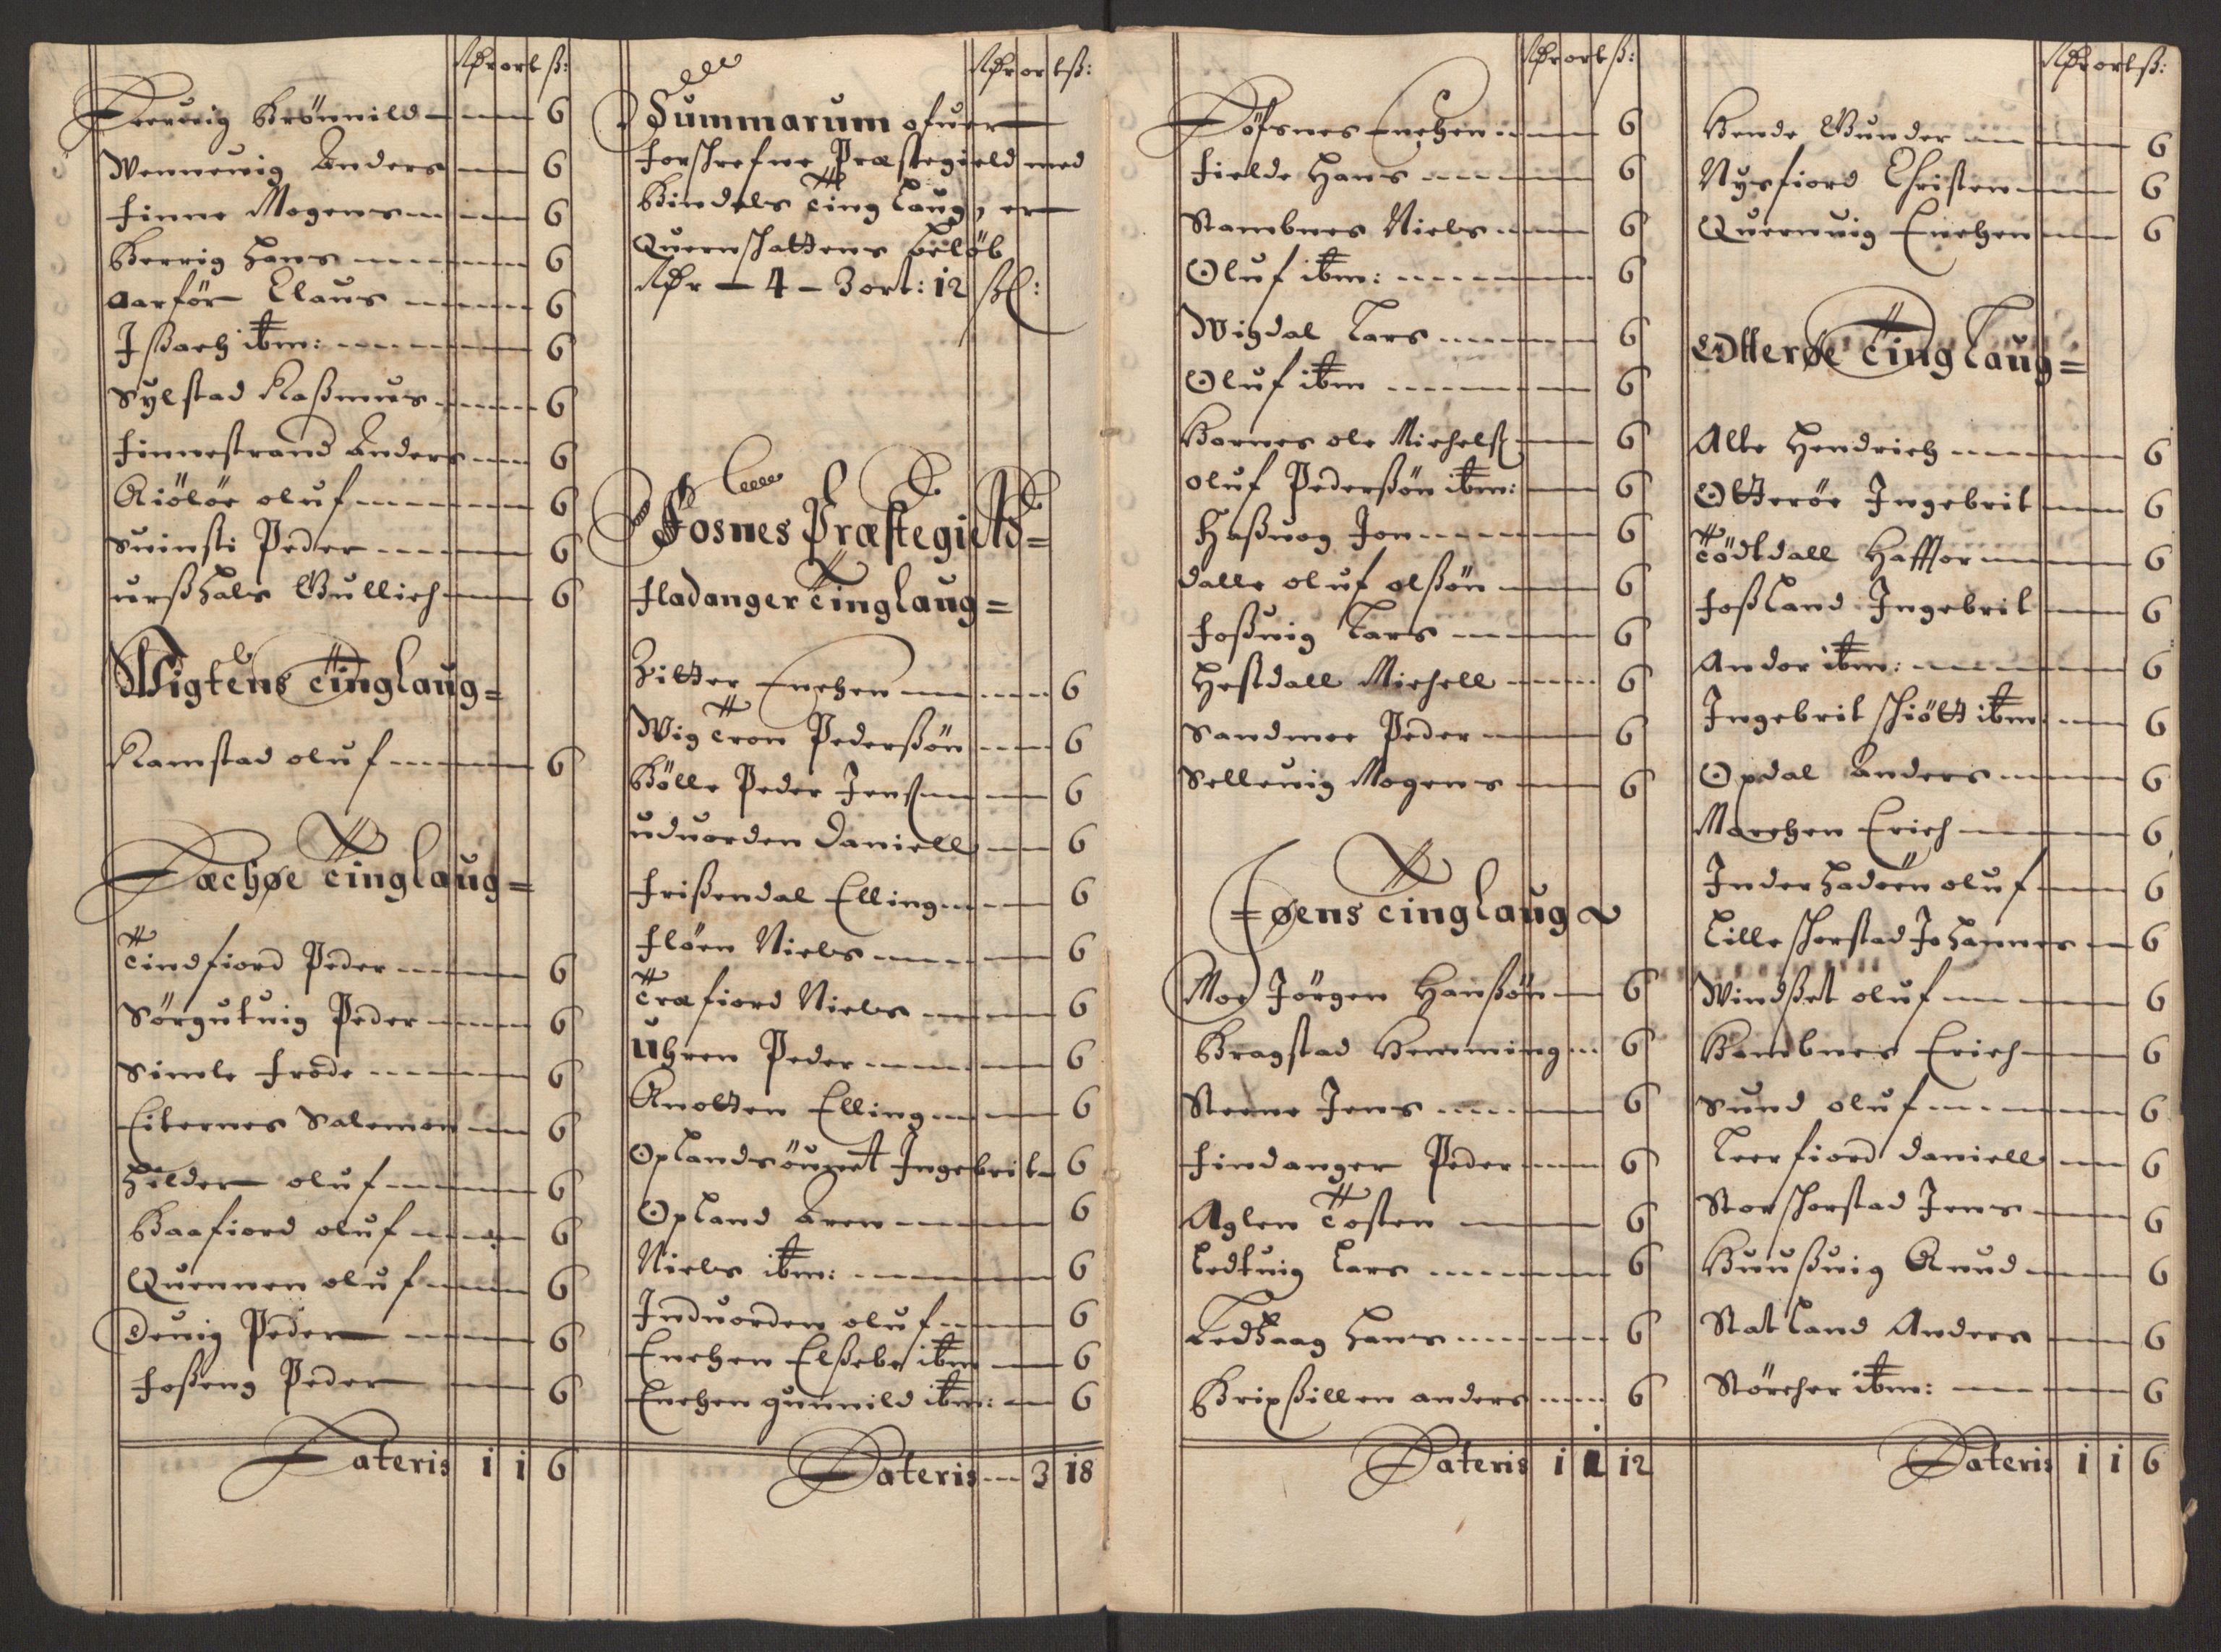 Rdr ort ß:
Leervig Brönnild 6
Wennevig Anders 6
Finne Mogens 6
Berrig Hans 6
Aarför Claus 6
Ißach ibm: 6
Sylstad Raßmus 6
Finnestrand Anders 6
Kiölöe oluf 6
Svinsti Peder 6
urßhals Gullich 6
Wigtens Tinglaug=
Ramstad oluf 6
Lechøe Tinglaug=
Tindfiord Peder 6
Sörgutvig Peder 6
Simle Frode 6
Eiternes Salemon 6
Helder oluf 6
Baafiord oluf 6
Quennen oluf 6
Devig Peder 6
Foßeng Peder 6
Lateris 1 1 6
Rdr ort ß:
Summarum ofuer
forschrefne Præstegield med
Bindals Ting laug, er
Quernschattens beløb
Rdr 4 - 3 ort: 12 ßl:
Fosnes Præstegield=
Fladanger Tinglaug=
Zitter Enchen 6
Wig Tron Pederßön 6
Bölle Peder Jens 6
uduorden Daniell 6
Frißendal Elling 6
Flöen Niels 6
Træfiord Niels 6
Uhren Peder 6
Knotten Elling 6
Oplandsöuret Ingebrit 6
Opland Aren 6
Niels ibm: 6
Induorden oluf 6
Enchen Elßebe ibm 6
Enchen gunnild ibm: 6
Lateris 3 18
Rdr ort ß:
Löfsnes Enchen 6
Fielde Hans 6
Stambnes Niels 6
Oluf ibm: 6
Wigdal Lars 6
Oluf ibm 6
Bornes ole Michels 6
oluf Pederßön ibm: 6
Haßvog Jon 6
dalle oluf olßön 6
Foßvig Lars 6
Hestdall Michell 6
Sandmoe Peder 6
Sellevig Mogens 6
Føens Tinglaug
Moe Jörgen Hanßön 6
Bragstad Hemming 6
Steene Jens 6
Findanger Peder 6
Aglen Tosten 6
Ledtvig Lars 6
Ledhaag Hans 6
Gripßillen anders 6
Lateris 1 1 12
Rdr ort ß:
Bende Gunder 6
Nysfiord Christen 6
Quernvig Enchen 6
Otterøe Tinglaug=
Alte Hendrich 6
Otterøe Ingebrit 6
Tödtdall Haffor 6
Foßland Ingebrit 6
Andor ibm: 6
Ingebrit schiött ibm 6
Opdal Anders 6
Marchen Erich 6
Inderhadöen oluf 6
Lille schorstad Johannes 6
Windßet oluf 6
Bambnes Erich 6
Sund oluf 6
Leerfiord Daniell 6
Storschorstad Jens 6
Huußvig Knud 6
Statland Anders 6
Störcher ibm: 6
Lateris 1 1 6